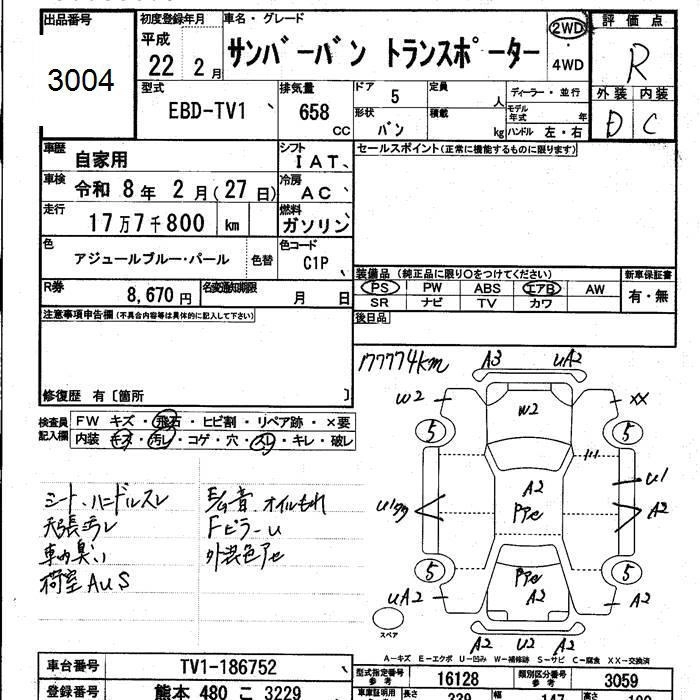 出品番号
3004
初度登録年月
平成
22 2月
車名・グレード
サンバーバン トランスポーター
2WD
・
4WD
評価点
R
外装 内装
D C
型式
EBD-TV1
排気量
658
CC
ドア
5
形状
バン
定員
人
積載
kg
ディーラー・並行
モデル
年式 年
ハンドル 左・右
車歴
自家用
シフト
IAT
車検
令和 8年 2月(27日)
冷房
AC
走行
17万7千800 km
燃料
ガソリン
色
アジュールブルー・パール
色替
色コード
C1P
R券
8,670円
名変通知期限
月 日
セールスポイント(正常に機能するものに限ります)
装備品 (純正品に限り○をつけてください)
PS PW ABS エアB AW
SR ナビ TV カワ
新車保証書
有・無
後日品
注意事項申告欄(不具合内容等は具体的に記入して下さい)
修復歴 有〔箇所 〕
検査員
記入欄
FW キズ・飛石・ヒビ割・リペア跡・×要
内装 キズ・汚レ・コゲ・穴・スレ・キレ・破レ
シート、ハンドルスレ
天張汚レ
車内臭い
荷室AUS
オイルもれ
FピラーU
外装色アせ
177774km
A3 UA2
W2 W2 XX
5 5
U1 A2 U1
A2
PPe
5 5
PPe
UA2 A2 A2
A2 U2 A2
スペア
A-キズ E-エクボ U-凹み W-補修跡 S-サビ C-腐食 XX-交換済
車台番号
TV1-186752
型式指定番号
参考
16128
類別区分番号
参考
3059
登録番号
熊本 480 こ 3229
車庫証明用
長さ
339
幅
147
高さ